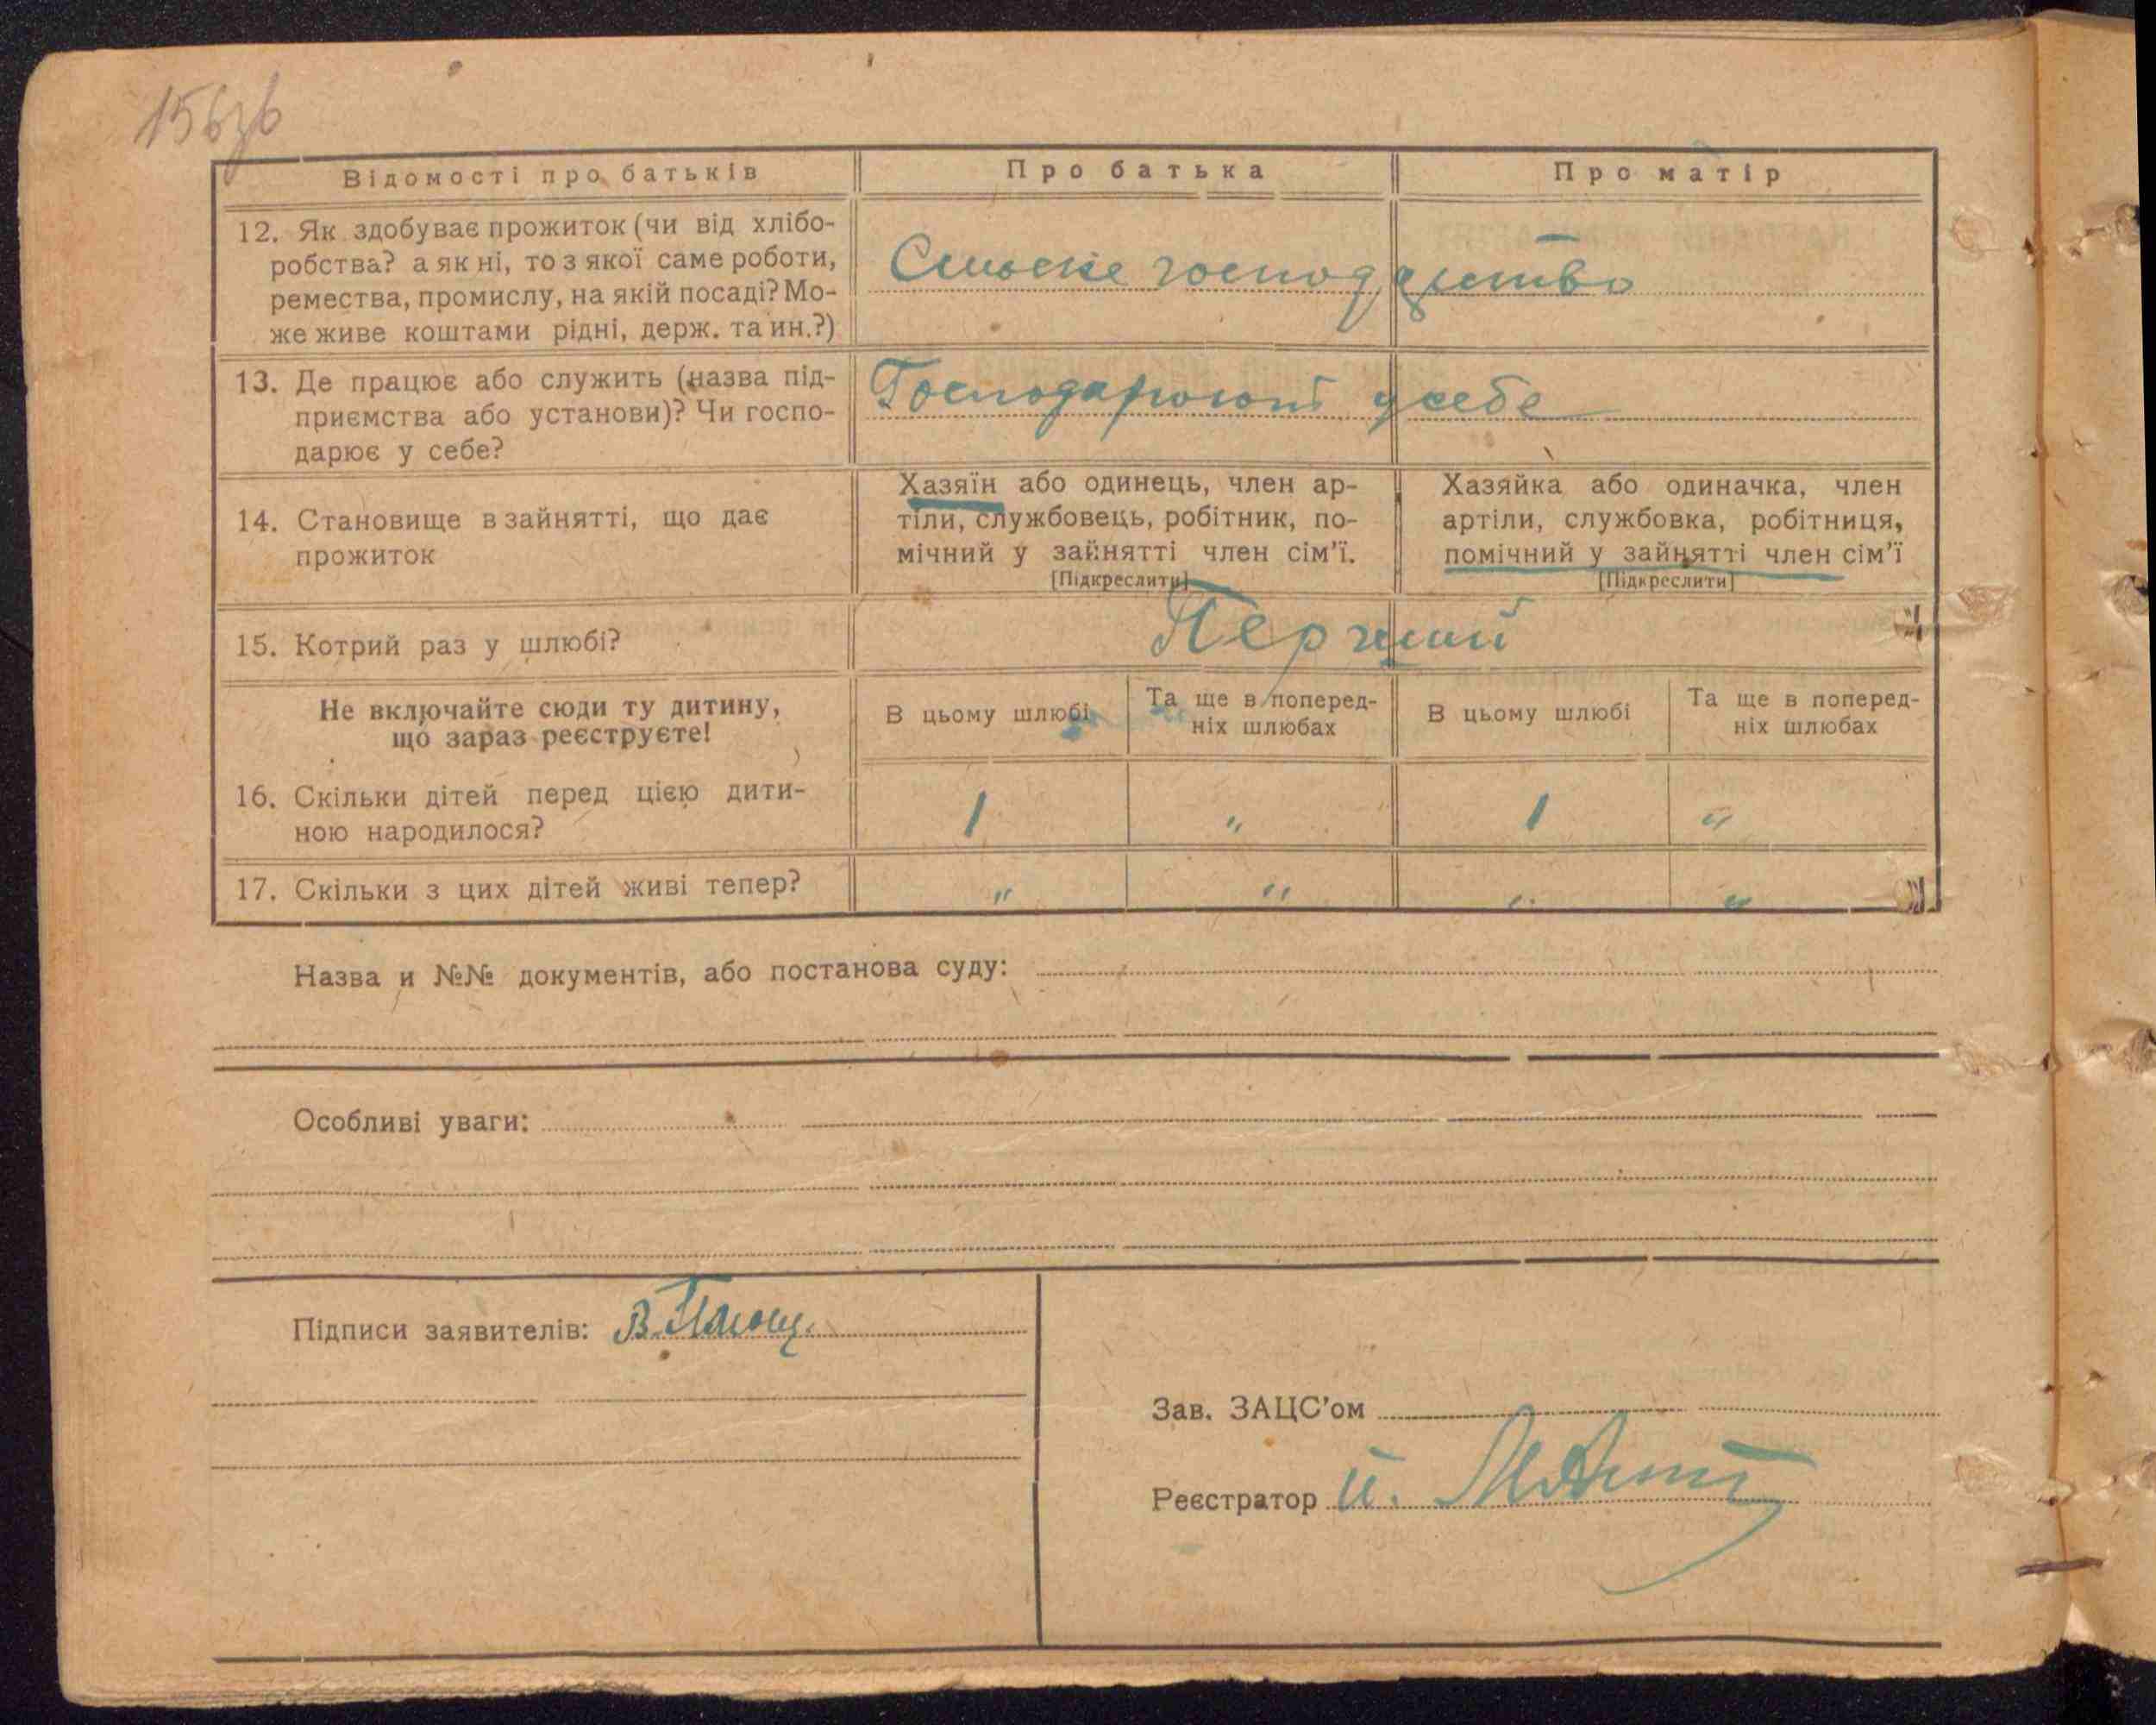 156зв
Відомості про батьків
Про батька
Про матір
12. Як здобуває прожиток (чи від хлібо-
робства? а як ні, то з якої саме роботи,
ремества, промислу, на якій посаді? Мо-
же живе коштами рідні, держ. та ин.?)
Сильске господарство
13. Де працює або служить (назва під-
приємства або установи)? Чи госпо-
дарює у себе?
Господарюют у себе
14. Становище в зайнятті, що дає
прожиток
Хазяїн або одинець, член ар-
тіли, службовець, робітник, по-
мічний у зайнятті член сім'ї.
[Підкреслити]
Хазяйка або одиначка, член
артіли, службовка, робітниця,
помічний у зайнятті член сім'ї
[Підкреслити]
15. Котрий раз у шлюбі?
Перший
Не включайте сюди ту дитину,
що зараз реєструєте!
В цьому шлюбі
Та ще в поперед-
ніх шлюбах
В цьому шлюбі
Та ще в поперед-
ніх шлюбах
16. Скільки дітей перед цією дити-
ною народилося?
1 " 1 "
17. Скільки з цих дітей живі тепер?
" " " "
Назва и №№ документів, або постанова суду:
Особливі уваги:
Підписи заявителів: В.
Зав. ЗАЦС'ом
Реєстратор